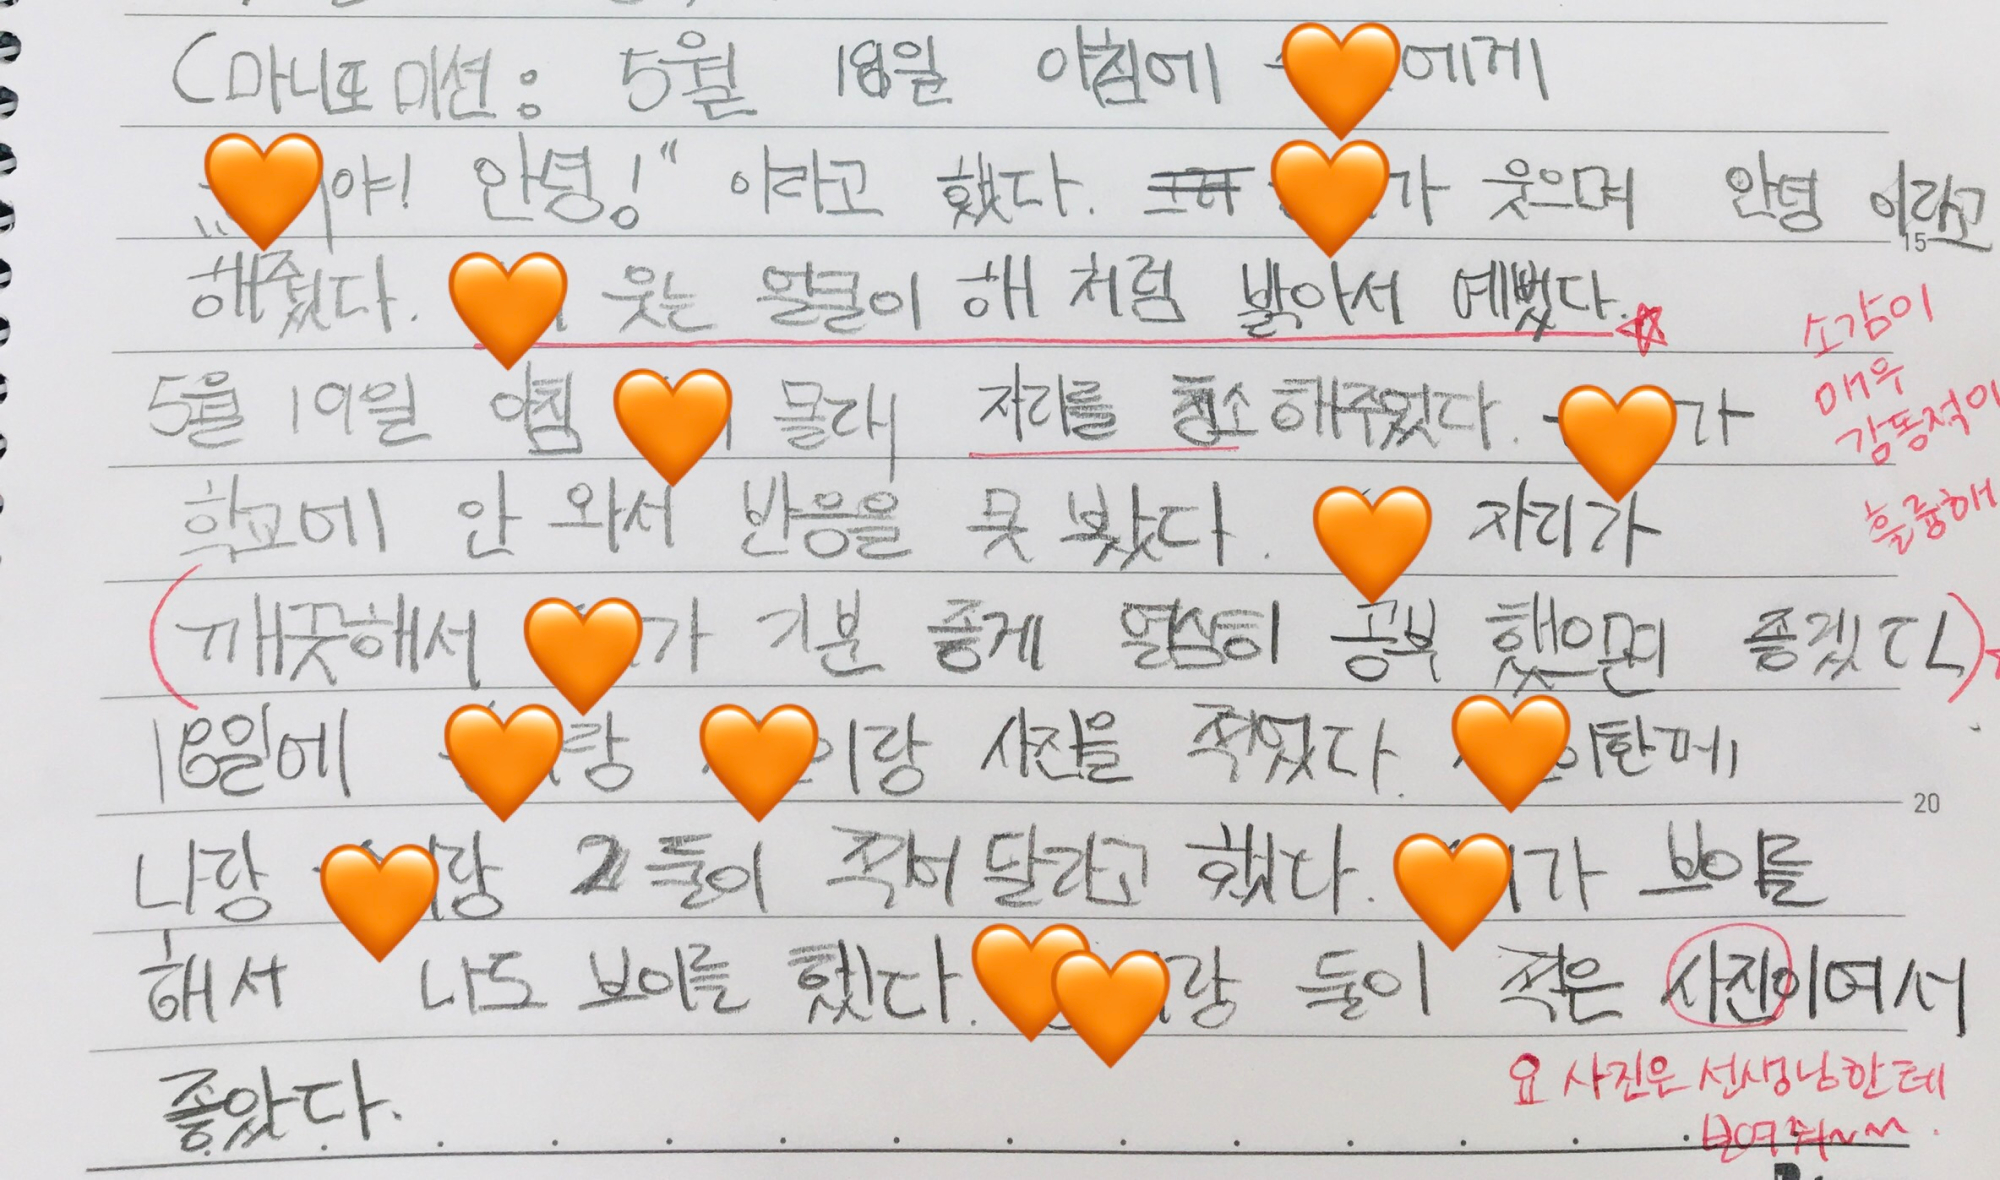 (마니또 미션: 5월 18일 아침에 에게
야! 안녕!" 이라고 했다. 가 웃으며 안녕 이라고
해줬다. 웃는 얼굴이 해 처럼 밝아서 예뻤다.
소감이
매우
감동적이
훌륭해
5월 19일 아침 몰래 자리를 청소해주었다. 가
학교에 안 와서 반응을 못 봤다. 자리가
깨끗해서 가 기분 좋게 열심히 공부 했으면 좋겠다
18일에 랑 이랑 사진을 찍었다. 이한테
나랑 랑 둘이 찍어 달라고 했다. 가 브이를
해서 나도 브이를 했다. 랑 둘이 찍은 사진이여서
좋았다.
요 사진은 선생님한테
보여줘~~~.
15
20